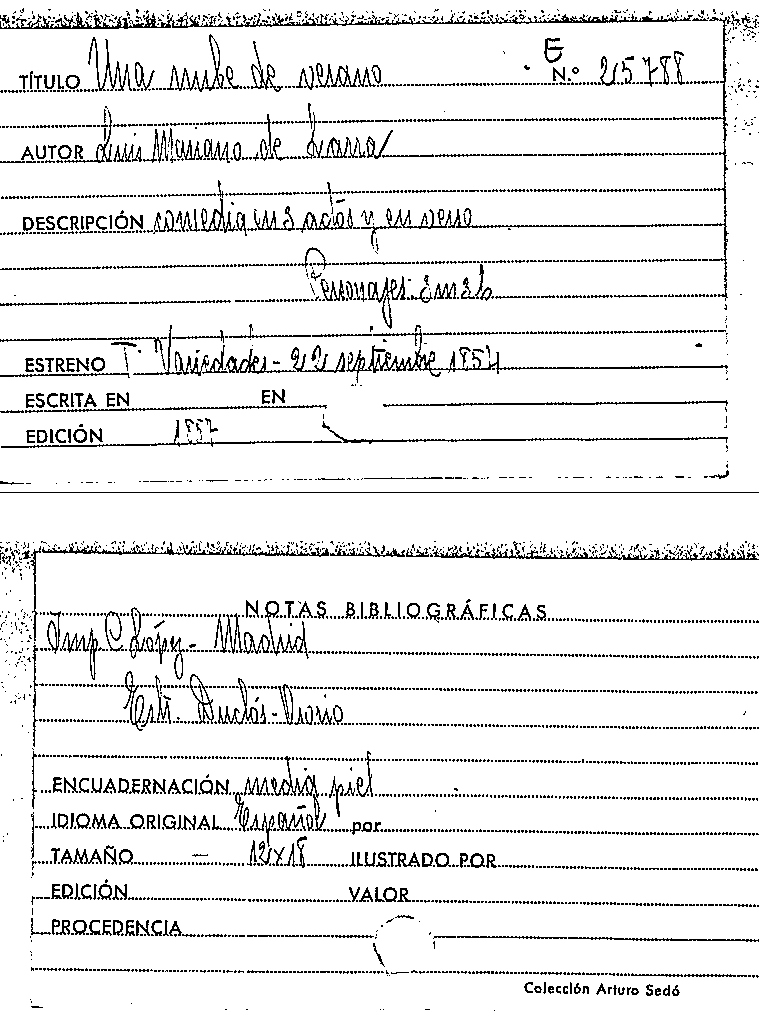 E
TÍTULO Una nube de verano N.º 25788
AUTOR Luis Mariano de Larra
DESCRIPCIÓN comedia en 3 actos y en verso
Personajes:
ESTRENO T. Variedades - 22 septiembre 1854
ESCRITA EN EN
EDICIÓN 1857
NOTAS BIBLIOGRÁFICAS
Imp C. López - Madrid
ENCUADERNACIÓN media piel
IDIOMA ORIGINAL Español por
TAMAÑO — 12x18 ILUSTRADO POR
EDICIÓN VALOR
PROCEDENCIA
Colección Arturo Sedó